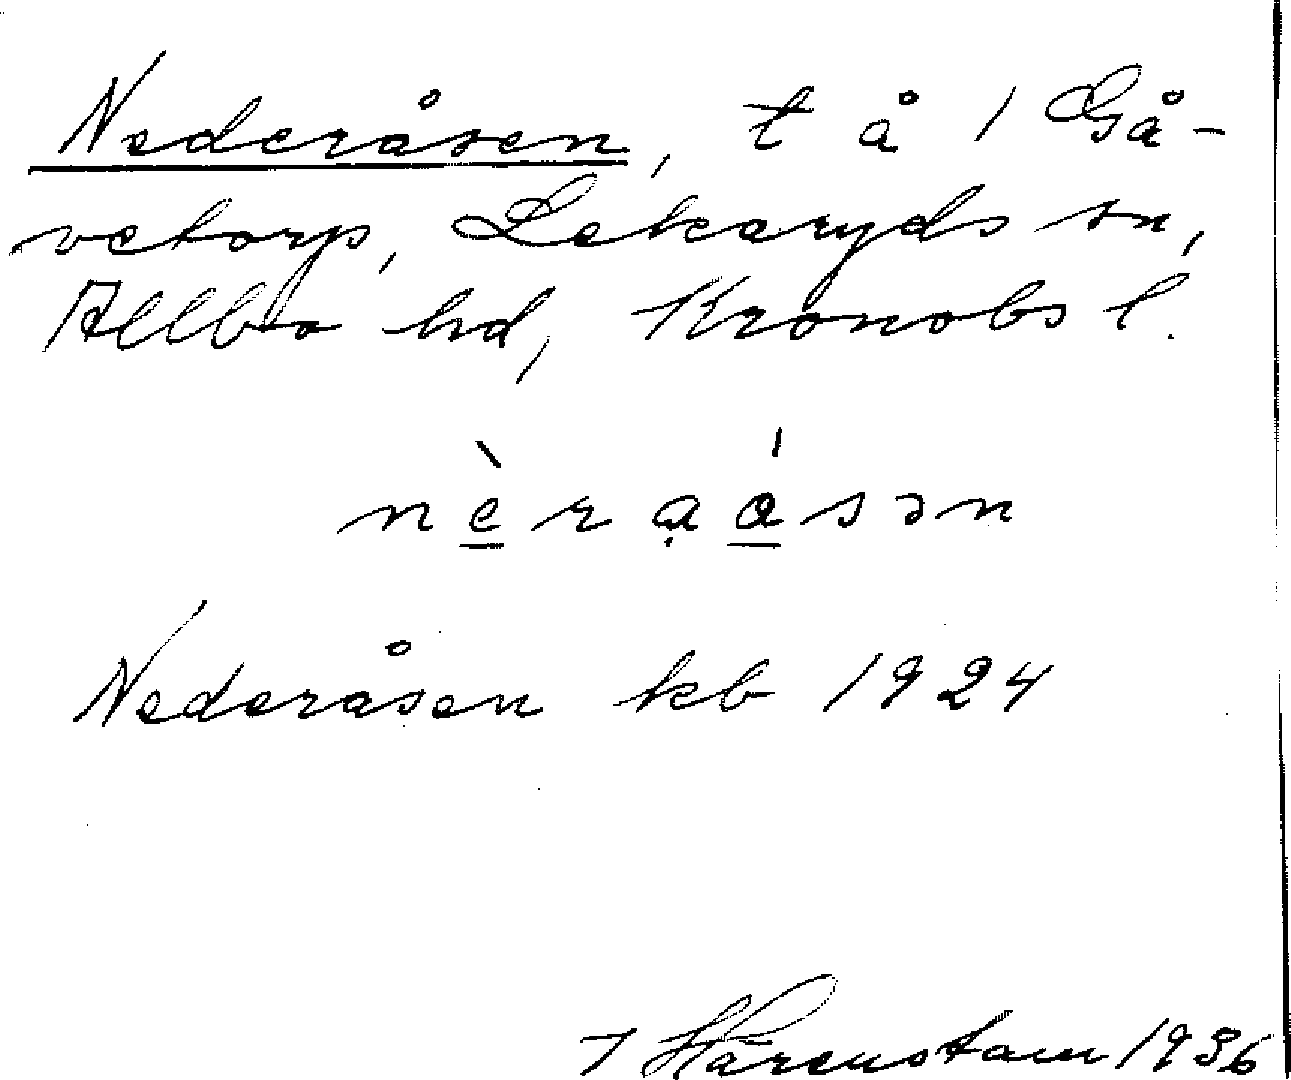 Nederåsen, t å 1 Gå-
vetorp, Lekaryds sn,
Allbo hd, Kronobs l.
nèrạásən
Nederåsen kb 1924
Härenstam 1936